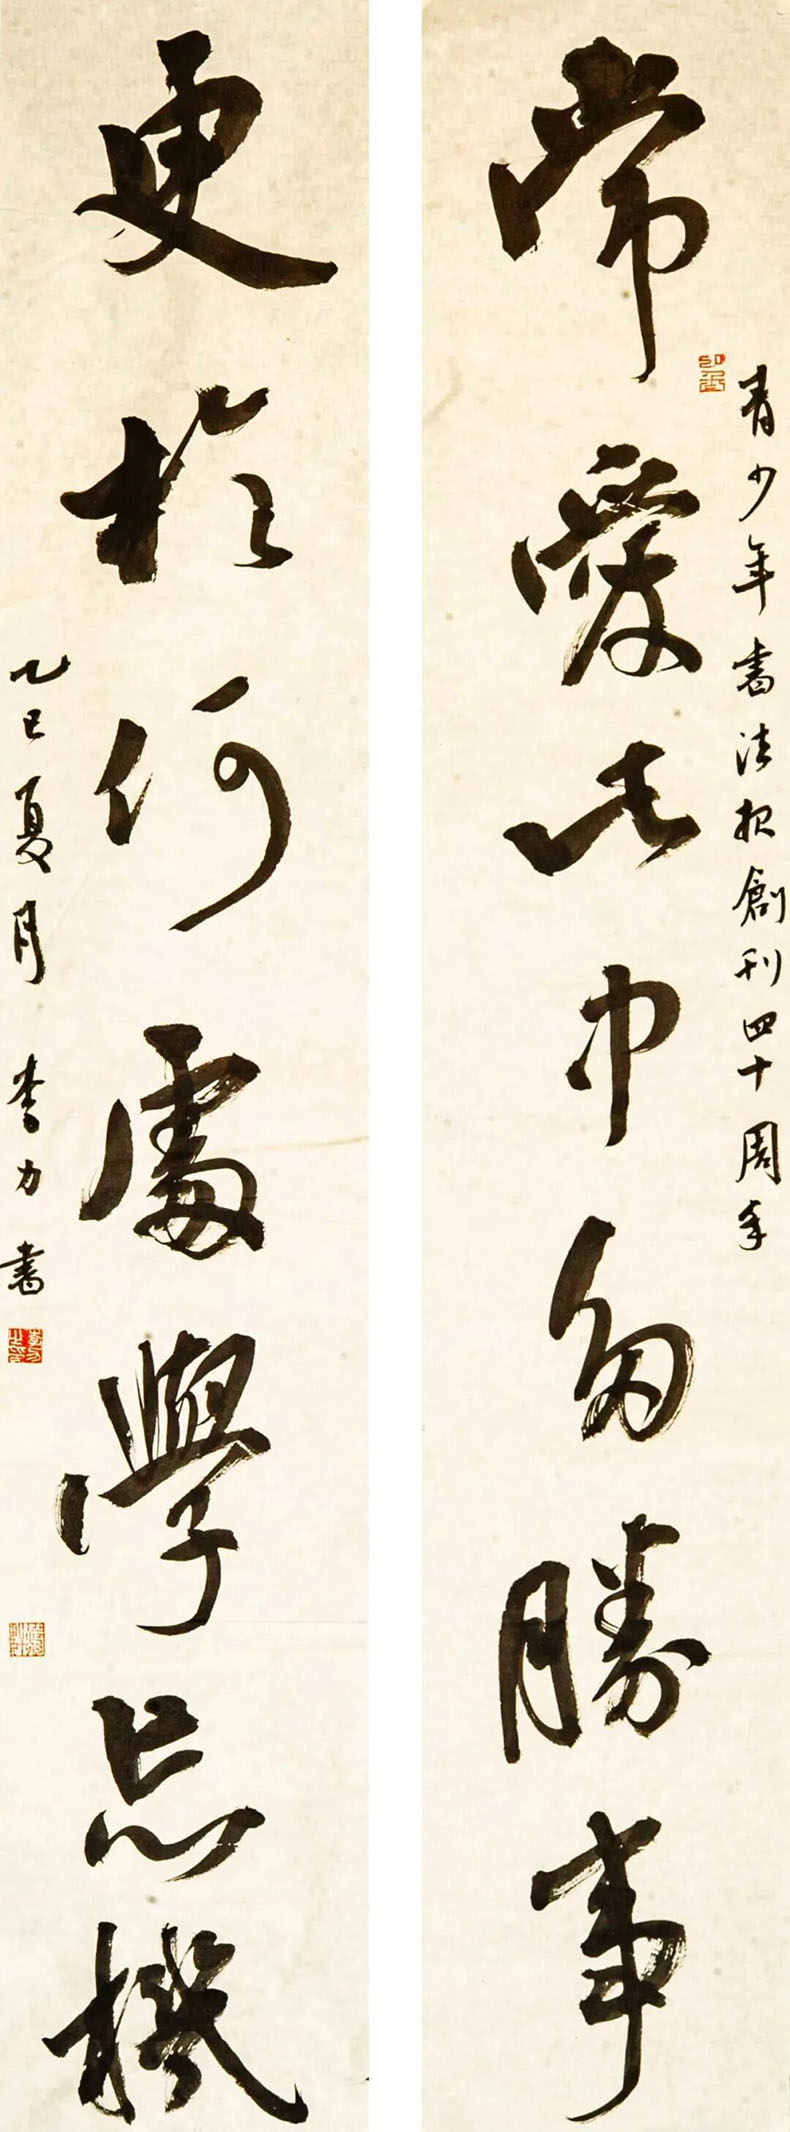 青少年書法报創刊四十周年
常愛此中多勝事
更於何處學忘機
乙巳夏月 李力書